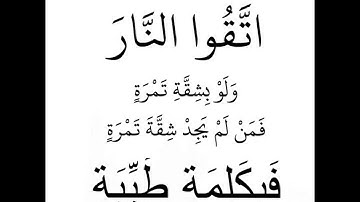 اتَّقُوا النَّارَ
وَلَوْ بِشِقَّةِ تَمْرَةٍ
فَمَنْ لَمْ يَجِدْ شِقَّةَ تَمْرَةٍ
فَبِكَلِمَةٍ طَيِّبَةٍ